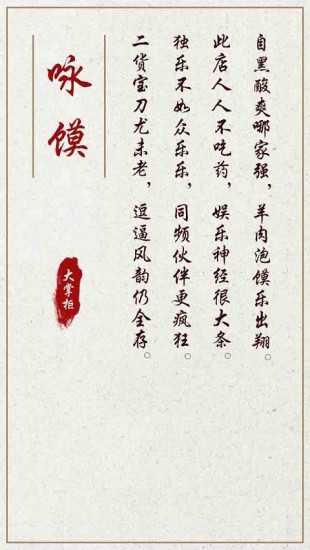 咏馍
自黑酸爽哪家强，羊肉泡馍乐出翔。
此店人人不吃药，娱乐神经很大条。
独乐不如众乐乐，同频伙伴更疯狂。
二货宝刀尤未老，逗逼风韵仍全存。
大掌柜